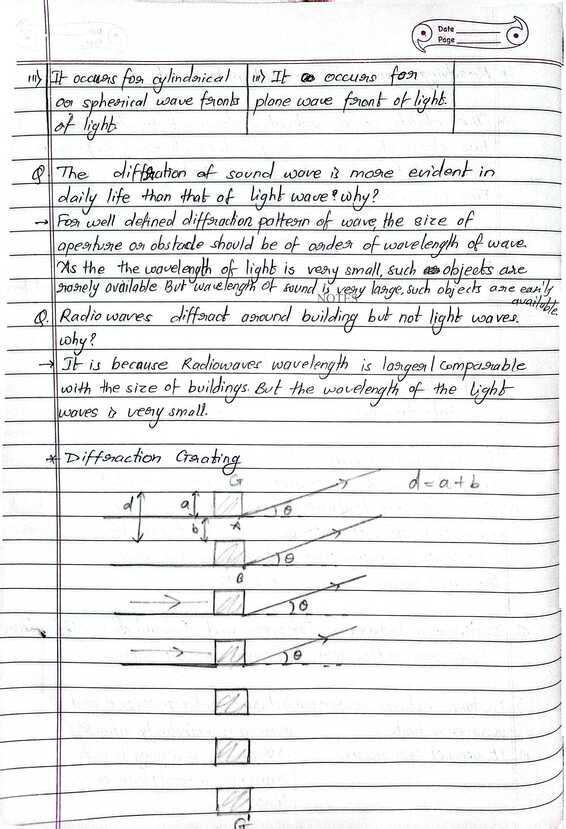 Date
Page
iii) It occurs for cylindrical
or spherical wave fronts
of light.
iii) It occurs for
plane wave front of light.
Q. The diffration of sound wave is more evident in
daily life than that of light wave? why?
→ For well defined diffraction pattern of wave, the size of
aperture or obstacle should be of order of wavelength of wave.
As the the wavelength of light is very small, such objects are
rarely available But wavelength of sound is very large, such objects are easily
available.
NOTES
Q. Radio waves diffract around building but not light waves.
why?
→ It is because Radiowaves wavelength is larger/comparable
with the size of buildings. But the wavelength of the light
waves is very small.
* Diffraction Grating
G
d = a + b
d
a
θ
b
A
θ
B
θ
θ
G'